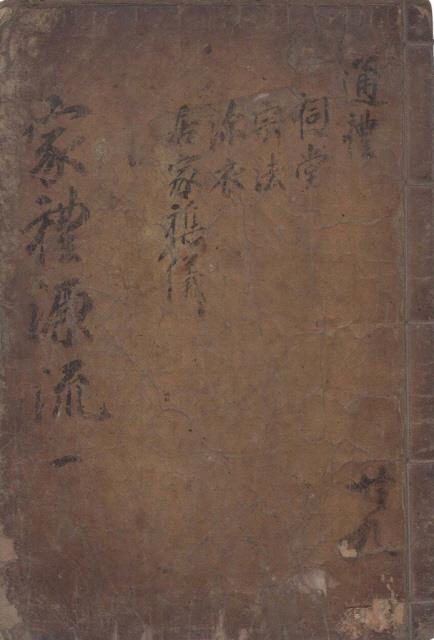 通禮
祠堂
宗法
深衣
居家雜儀
家禮源流 一
共九